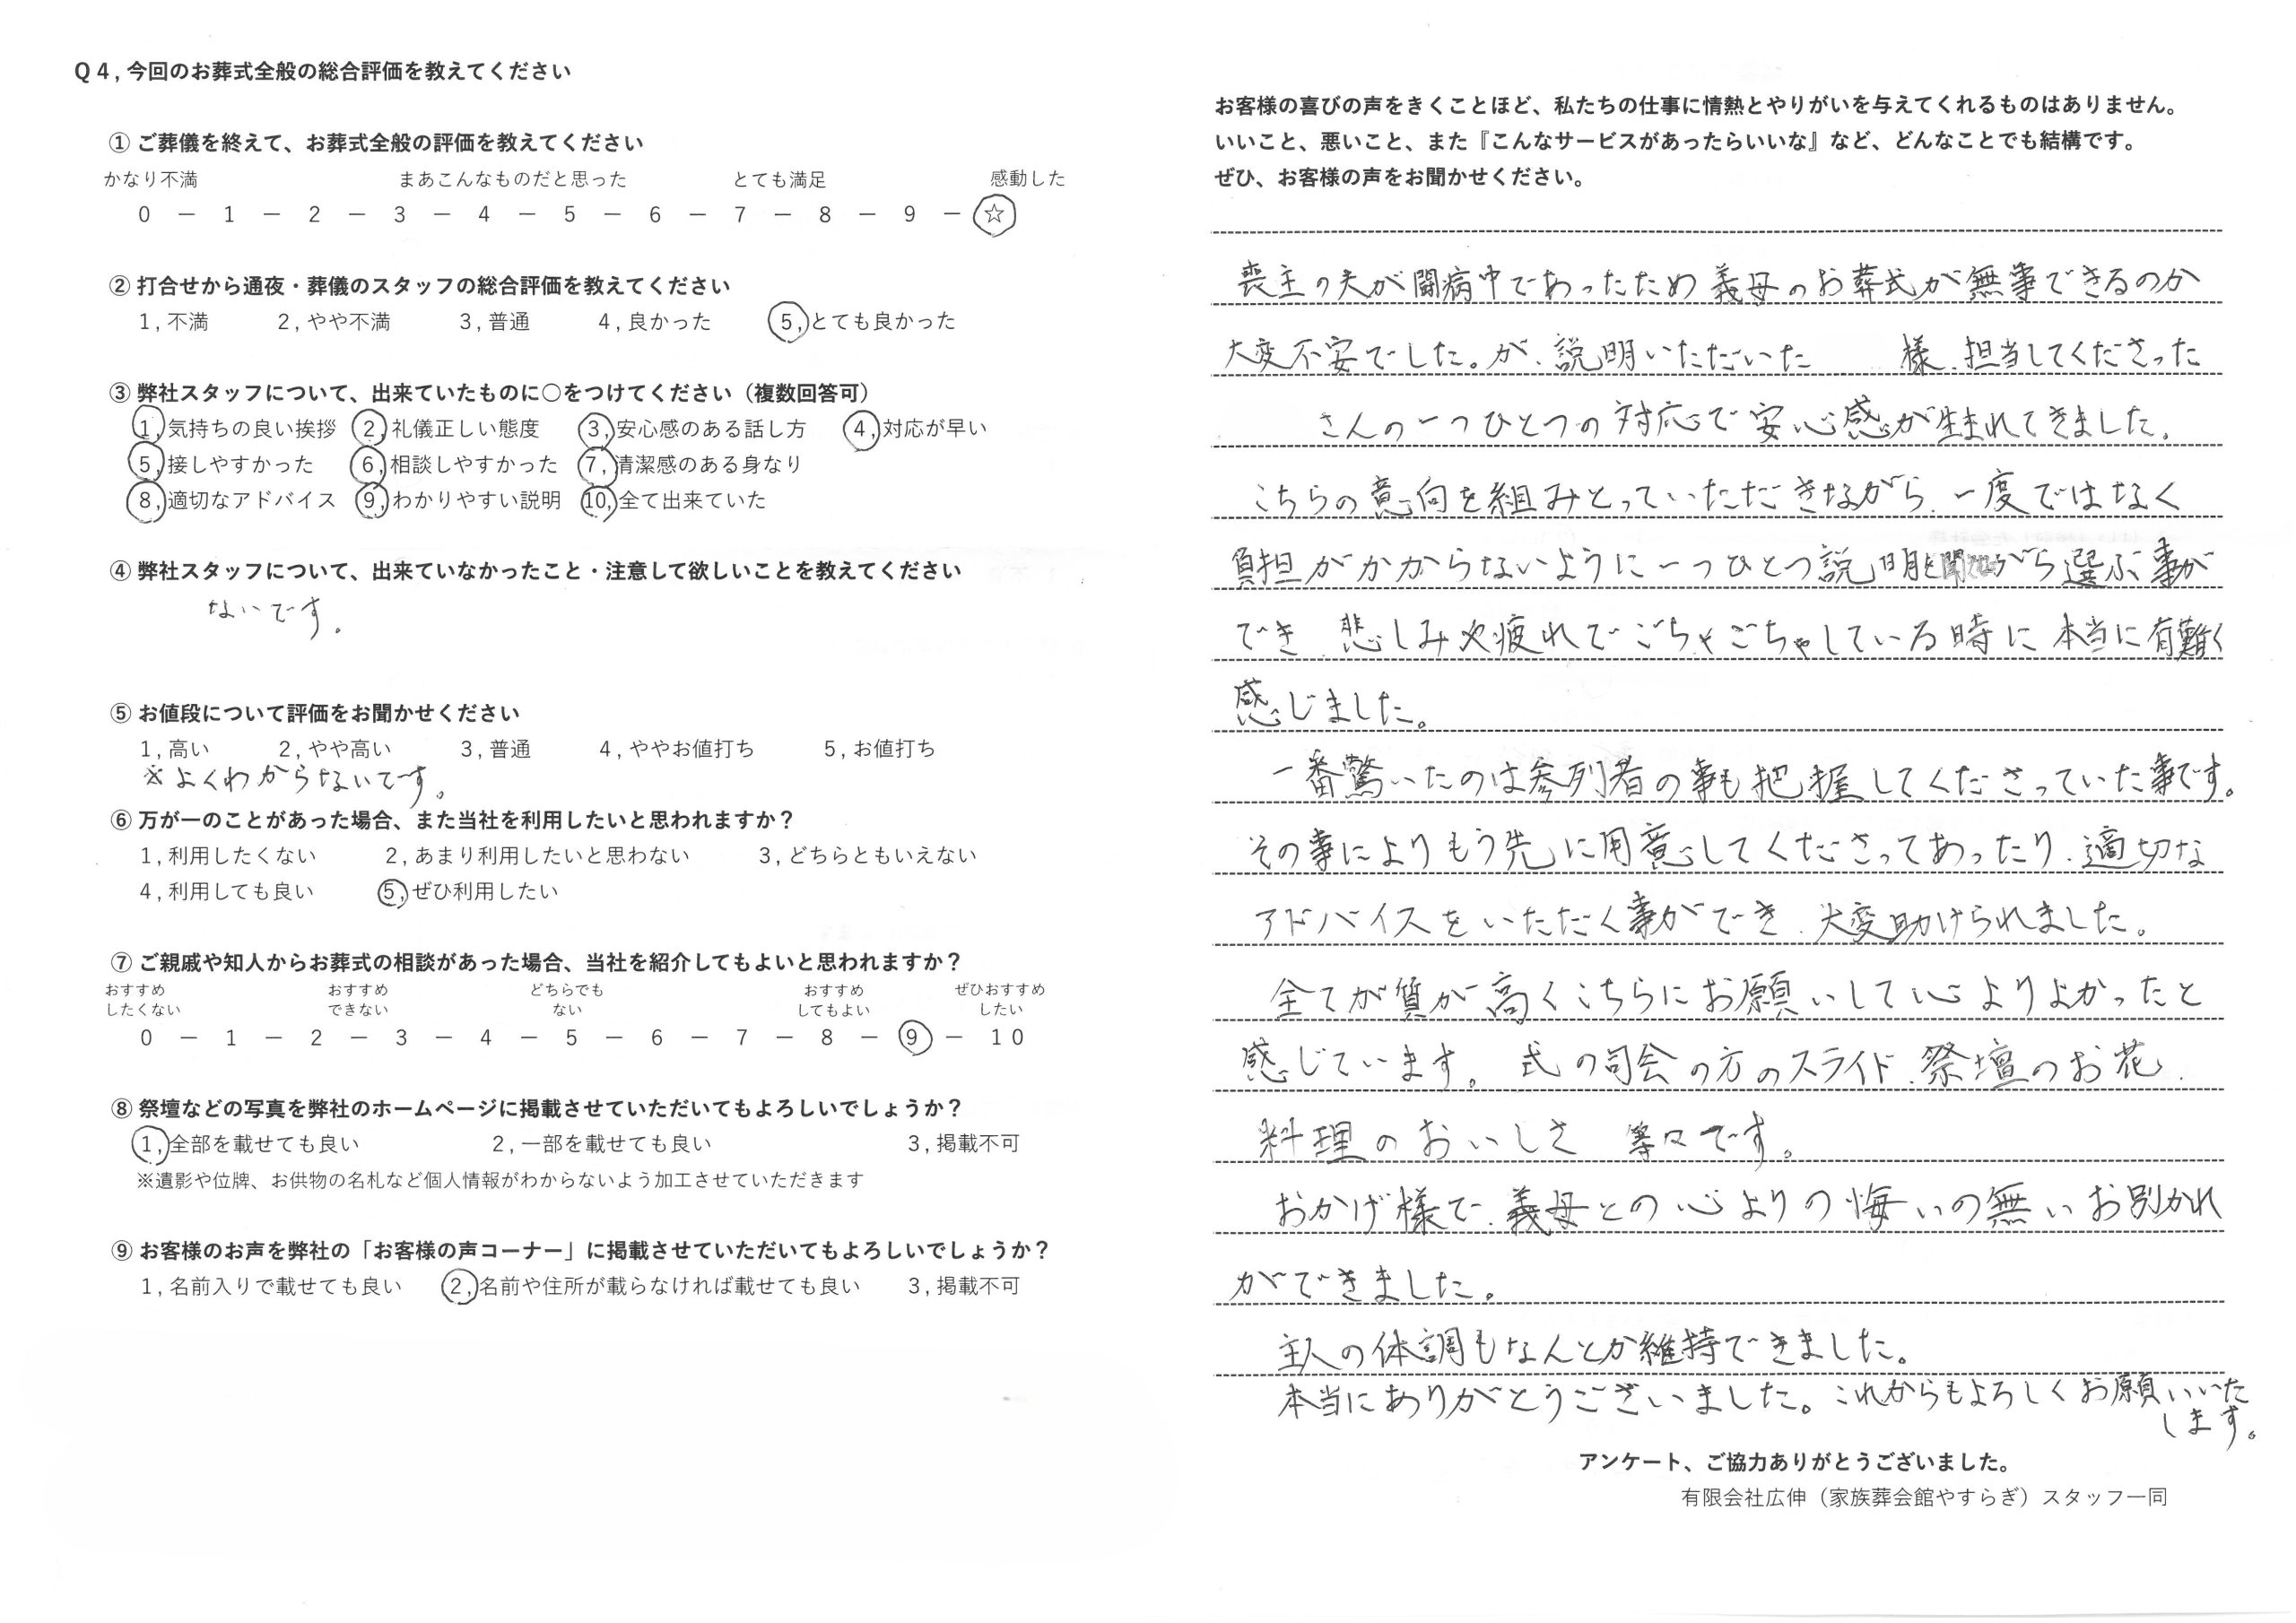 Q4,今回のお葬式全般の総合評価を教えてください
① ご葬儀を終えて、お葬式全般の評価を教えてください
かなり不満 まあこんなものだと思った とても満足 感動した
0 － 1 － 2 － 3 － 4 － 5 － 6 － 7 － 8 － 9 － ☆
② 打合せから通夜・葬儀のスタッフの総合評価を教えてください
1,不満 2,やや不満 3,普通 4,良かった 5,とても良かった
③ 弊社スタッフについて、出来ていたものに○をつけてください（複数回答可）
1,気持ちの良い挨拶 2,礼儀正しい態度 3,安心感のある話し方 4,対応が早い
5,接しやすかった 6,相談しやすかった 7,清潔感のある身なり
8,適切なアドバイス 9,わかりやすい説明 10,全て出来ていた
④ 弊社スタッフについて、出来ていなかったこと・注意して欲しいことを教えてください
ないです。
⑤ お値段について評価をお聞かせください
1,高い 2,やや高い 3,普通 4,ややお値打ち 5,お値打ち
※よくわからないです。
⑥ 万が一のことがあった場合、また当社を利用したいと思われますか？
1,利用したくない 2,あまり利用したいと思わない 3,どちらともいえない
4,利用しても良い 5,ぜひ利用したい
⑦ ご親戚や知人からお葬式の相談があった場合、当社を紹介してもよいと思われますか？
おすすめ おすすめ どちらでも おすすめ ぜひおすすめ
したくない できない ない してもよい したい
0 － 1 － 2 － 3 － 4 － 5 － 6 － 7 － 8 － 9 － 10
⑧ 祭壇などの写真を弊社のホームページに掲載させていただいてもよろしいでしょうか？
1,全部を載せても良い 2,一部を載せても良い 3,掲載不可
※遺影や位牌、お供物の名札など個人情報がわからないよう加工させていただきます
⑨ お客様のお声を弊社の「お客様の声コーナー」に掲載させていただいてもよろしいでしょうか？
1,名前入りで載せても良い 2,名前や住所が載らなければ載せても良い 3,掲載不可
お客様の喜びの声をきくことほど、私たちの仕事に情熱とやりがいを与えてくれるものはありません。
いいこと、悪いこと、また『こんなサービスがあったらいいな』など、どんなことでも結構です。
ぜひ、お客様の声をお聞かせください。
喪主の夫が闘病中であったため義母のお葬式が無事できるのか
大変不安でした。が、説明いただいた 様、担当してくださった
さんの一つひとつの対応で安心感が生まれてきました。
こちらの意向を組みとっていただきながら、一度ではなく
負担がかからないように一つひとつ説明を聞きながら選ぶ事が
でき、悲しみや疲れでごちゃごちゃしている時に本当に有難く
感じました。
一番驚いたのは参列者の事も把握してくださっていた事です。
その事によりもう先に用意してくださってあったり、適切な
アドバイスをいただく事ができ、大変助けられました。
全てが質が高くこちらにお願いして心よりよかったと
感じています。式の司会の方のスライド、祭壇のお花、
料理のおいしさ 等々です。
おかげ様で、義母との心よりの悔いの無いお別かれ
ができました。
主人の体調もなんとか維持できました。
本当にありがとうございました。これからもよろしくお願いいた
します。
アンケート、ご協力ありがとうございました。
有限会社広伸（家族葬会館やすらぎ）スタッフ一同